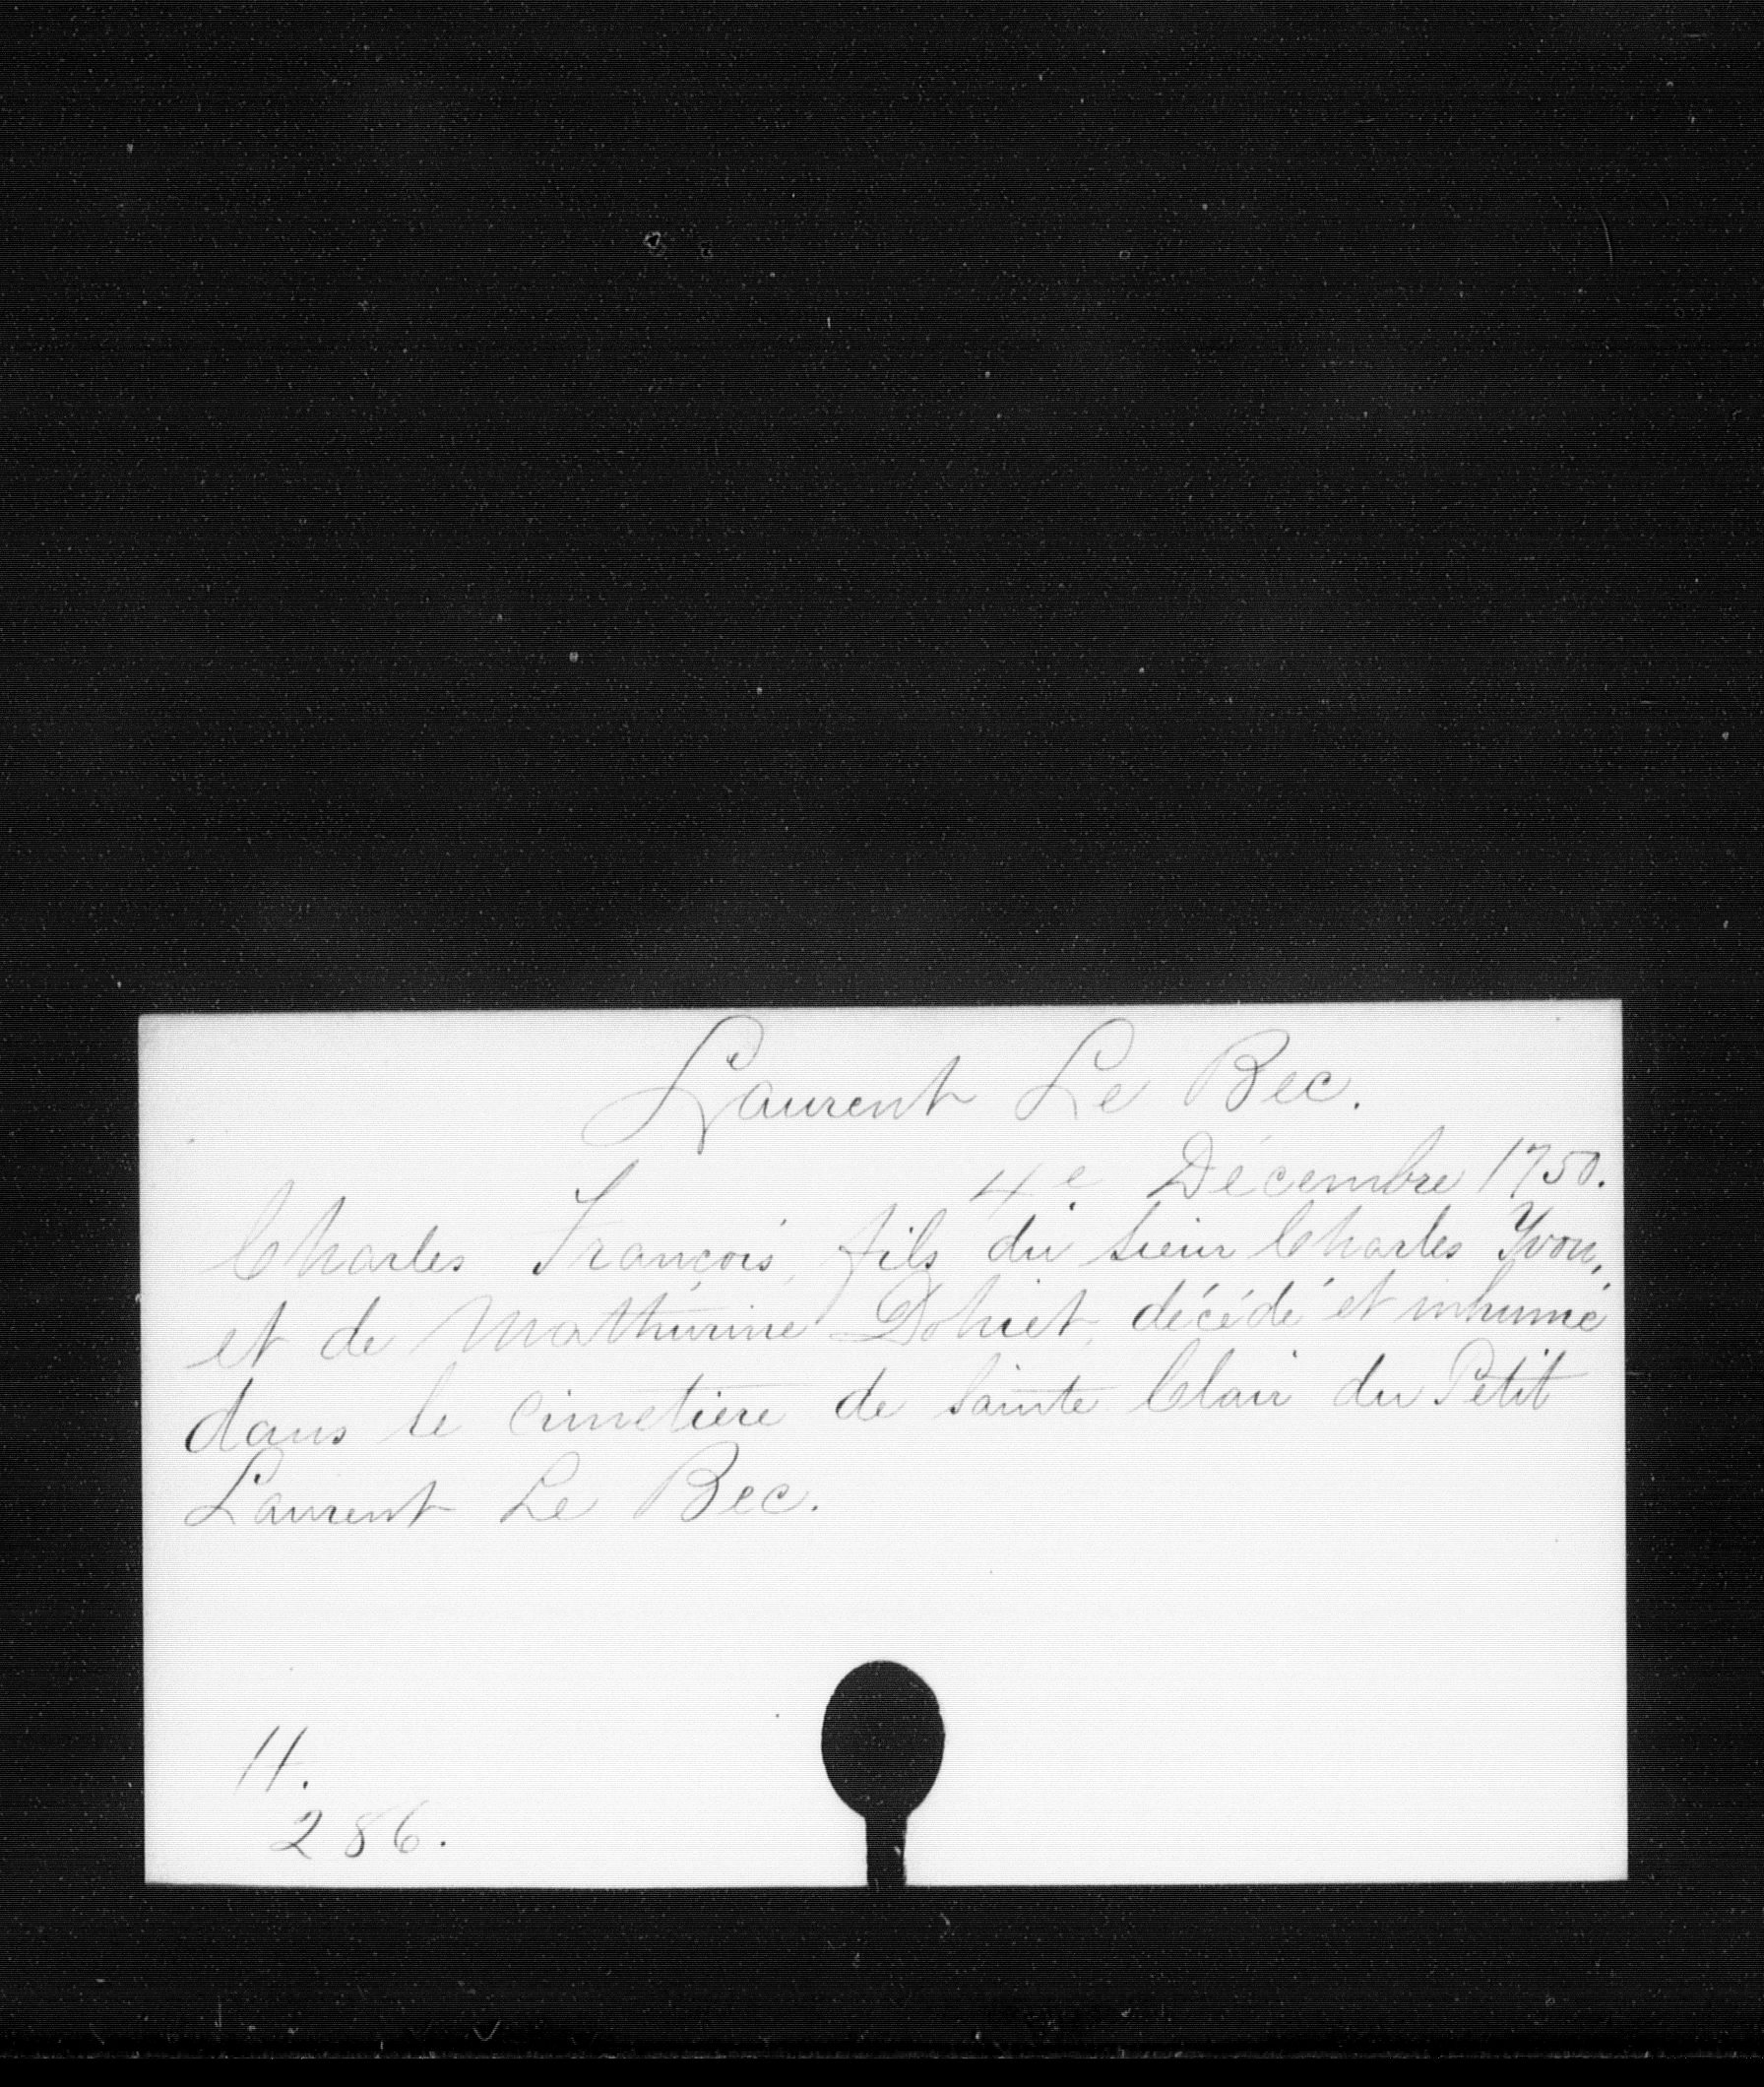 Laurent Le Bec.
4e Décembre 1750.
Charles François, fils du sieur Charles Yvon,
et de Mathurine Dohiet, décédé et inhumé
dans le cimetière de Sainte Clair du Petit
Laurent Le Bec.
11.
286.